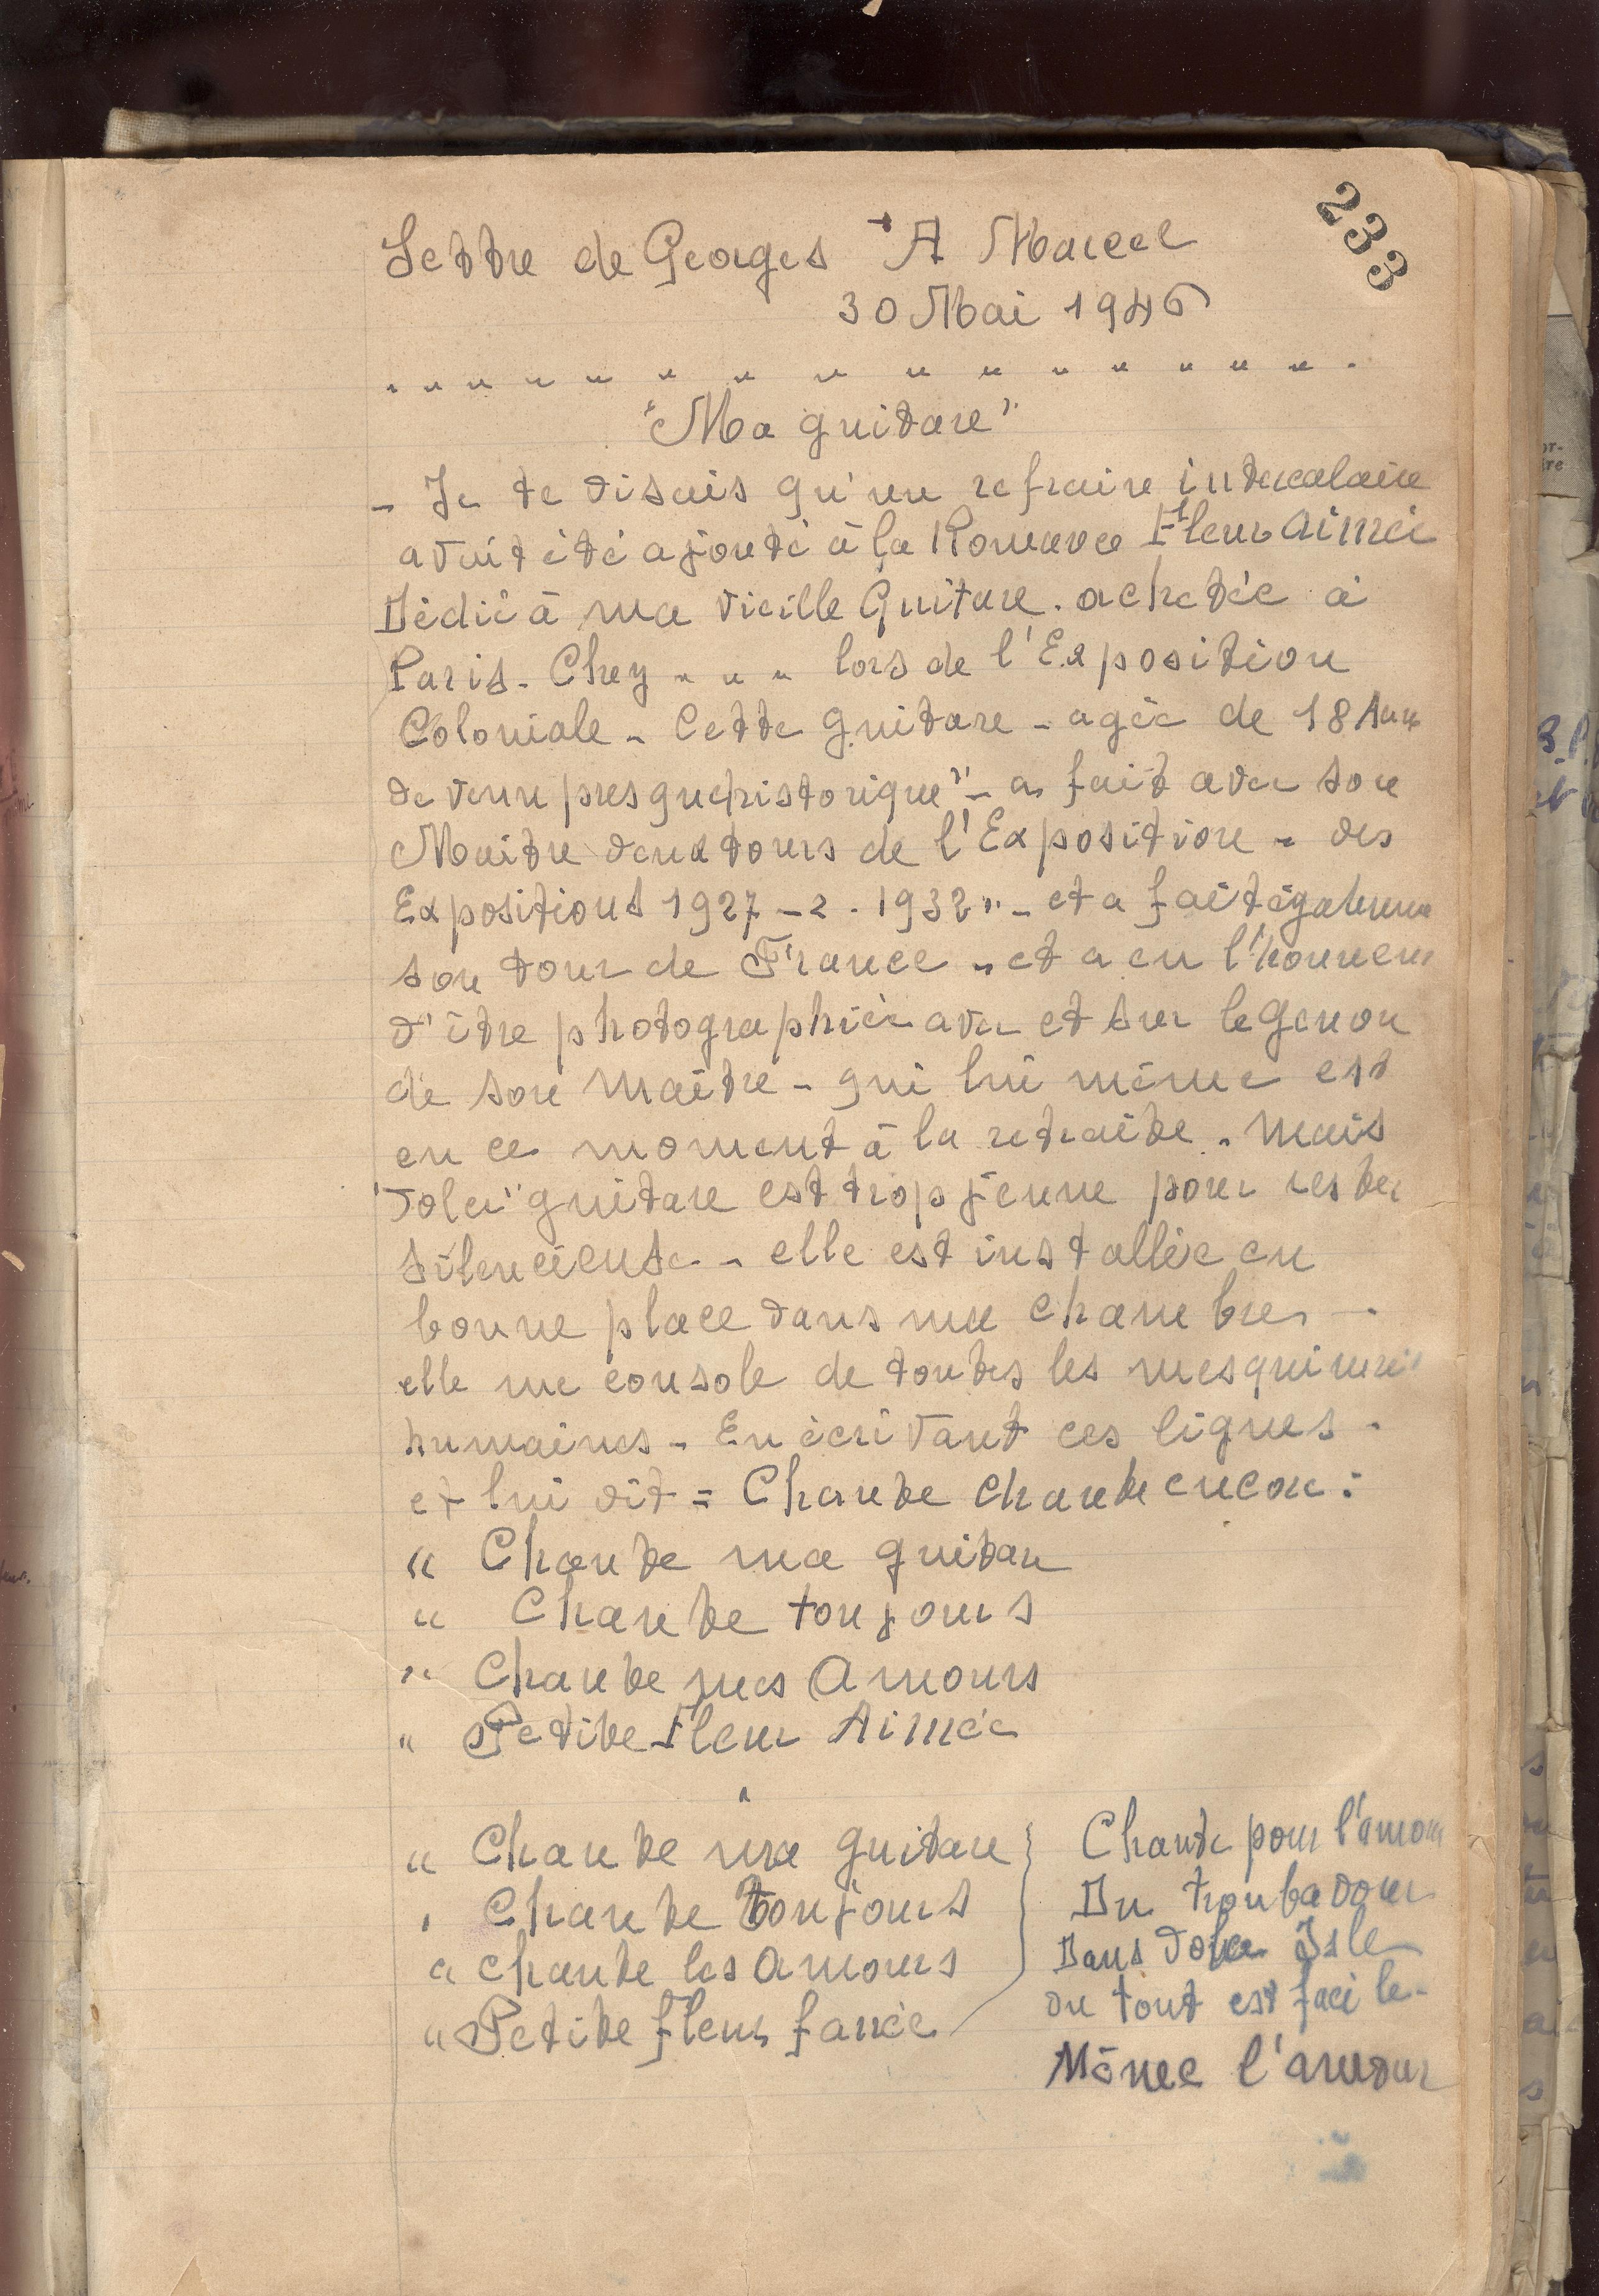 233
Lettre de Georges A Marcel
30 Mai 1946
"Ma guitare"
- Je te disais qu'un refraire intercalaire
avait été ajouté à la Romance Fleur Aimée
Dédié à ma vieille Guitare. achetée à
Paris - Chez " " " lors de l'Exposition
Coloniale - Cette guitare - agée de 18 Ans
devenu presque historique" - a fait avec son
Maitre deux tours de l'Exposition - des
Expositions 1927 - 2 - 1932" - et a fait également
son tour de France - et a eu l'honneur
d'être photographiée avec et sur le Genou
de son Maitre - qui lui même est
en ce moment à la retraite. Mais
guitare est trop jeune pour rester
silencieuse - elle est installée en
bonne place dans ma chambre -
elle me console de toutes les mesquineries
humaines - En écrivant ces lignes -
et lui dit = Chante chante encore :
" Chante ma guitare
" Chante toujours
" Chante mes Amours
" Petite Fleur Aimée
" Chante ma guitare
" Chante toujours
" Chante les Amours
" Petite fleur fanée
Chante pour l'amour
Du troubadour
Dans Isle
ou tout est facile -
Même l'amour